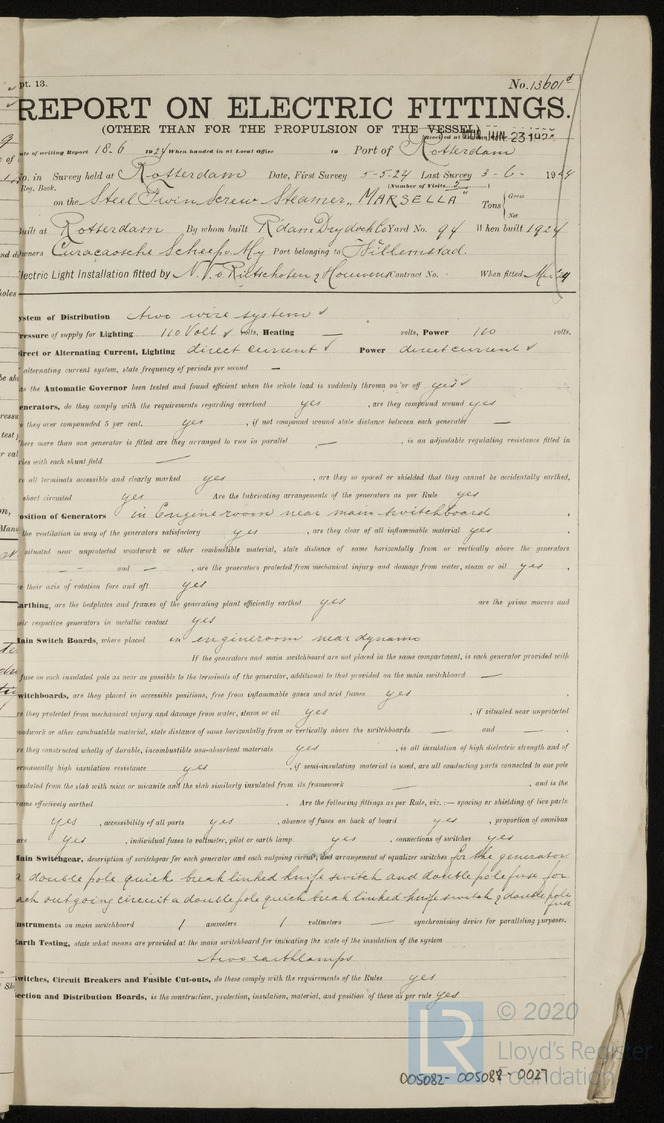 pt. 13.
No. 13601d
REPORT ON ELECTRIC FITTINGS.
(OTHER THAN FOR THE PROPULSION OF THE VESSEL)
MON. JUN. 23 1924
ate of writing Report 18.6 1924 When handed in at Local Office 19 Port of Rotterdam
o. in Survey held at Rotterdam Date, First Survey 5-5-24 Last Survey 3-6- 1924
Reg. Book. (Number of Visits 2)
on the Steel Twin Screw Steamer "MARSELLA" Tons { Gross Net
uilt at Rotterdam By whom built R'dam Drydock Co Yard No. 94 When built 1924
wners Curacaosche Scheepv. My Port belonging to Willemstad.
lectric Light Installation fitted by N.V. v. Rietschoten & Houwens Contract No. - When fitted 24
ystem of Distribution two wire system
ressure of supply for Lighting 110 Volt volts, Heating — volts, Power 110 volts.
irect or Alternating Current, Lighting direct current Power direct current
alternating current system, state frequency of periods per second —
as the Automatic Governor been tested and found efficient when the whole load is suddenly thrown on or off yes
enerators, do they comply with the requirements regarding overload yes , are they compound wound yes
e they over compounded 5 per cent. yes , if not compound wound state distance between each generator —
here more than one generator is fitted are they arranged to run in parallel — , is an adjustable regulating resistance fitted in
ries with each shunt field —
re all terminals accessible and clearly marked yes , are they so spaced or shielded that they cannot be accidentally earthed,
short circuited yes Are the lubricating arrangements of the generators as per Rule yes
osition of Generators in Engineroom near main switchboard
the ventilation in way of the generators satisfactory yes , are they clear of all inflammable material yes
situated near unprotected woodwork or other combustible material, state distance of same horizontally from or vertically above the generators
— and — , are the generators protected from mechanical injury and damage from water, steam or oil yes
e their axis of rotation fore and aft yes
arthing, are the bedplates and frames of the generating plant efficiently earthed yes are the prime movers and
eir respective generators in metallic contact yes
ain Switch Boards, where placed in engineroom near dynamo
If the generators and main switchboard are not placed in the same compartment, is each generator provided with
fuse on each insulated pole as near as possible to the terminals of the generator, additional to that provided on the main switchboard —
witchboards, are they placed in accessible positions, free from inflammable gases and acid fumes yes
re they protected from mechanical injury and damage from water, steam or oil yes , if situated near unprotected
oodwork or other combustible material, state distance of same horizontally from or vertically above the switchboards — and —
re they constructed wholly of durable, incombustible non-absorbent materials yes , is all insulation of high dielectric strength and of
ermanently high insulation resistance yes , if semi-insulating material is used, are all conducting parts connected to one pole
nsulated from the slab with mica or micanite and the slab similarly insulated from its framework — , and is the
rame effectively earthed . Are the following fittings as per Rule, viz. :— spacing or shielding of live parts
yes , accessibility of all parts yes , absence of fuses on back of board yes , proportion of omnibus
ars yes , individual fuses to voltmeter, pilot or earth lamp yes , connections of switches yes
ain Switchgear, description of switchgear for each generator and each outgoing circuit, and arrangement of equalizer switches for the generator
a double pole quick break linked knife switch and double pole fuse for
ach outgoing circuit a double pole quick break linked knife switch & double pole
fuse
nstruments on main switchboard 1 ammeters 1 voltmeters — synchronising device for paralleling purposes.
arth Testing, state what means are provided at the main switchboard for indicating the state of the insulation of the system
two earthlamps
witches, Circuit Breakers and Fusible Cut-outs, do these comply with the requirements of the Rules yes
ection and Distribution Boards, is the construction, protection, insulation, material, and position of these as per rule yes
LR
© 2020
Lloyd's Register
Foundation
005082-005088-0027